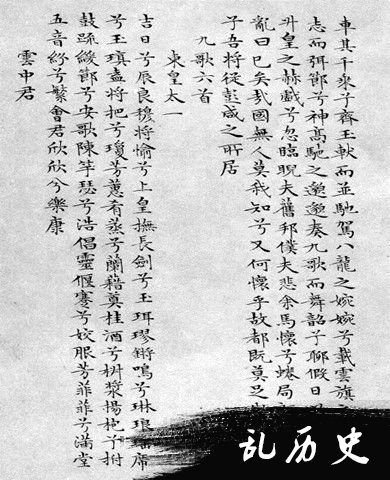 車其千乘兮齊玉軑而並馳駕八龍之婉婉兮載雲旗
志而弭節兮神高馳之邈邈奏九歌而舞韶兮聊假日
升皇之赫戲兮忽臨睨夫舊鄉僕夫悲余馬懷兮蜷局
亂曰已矣哉國無人莫我知兮又何懷乎故都既莫足
兮吾將從彭咸之所居
九歌六首
東皇太一
吉日兮辰良穆將愉兮上皇撫長劍兮玉珥璆鏘鳴兮琳琅席
兮玉瑱盍將把兮瓊芳蕙肴蒸兮蘭藉奠桂酒兮椒漿揚枹兮拊
鼓疏緩節兮安歌陳竽瑟兮浩倡靈偃蹇兮姣服芳菲菲兮滿堂
五音紛兮繁會君欣欣兮樂康
雲中君
乱历史